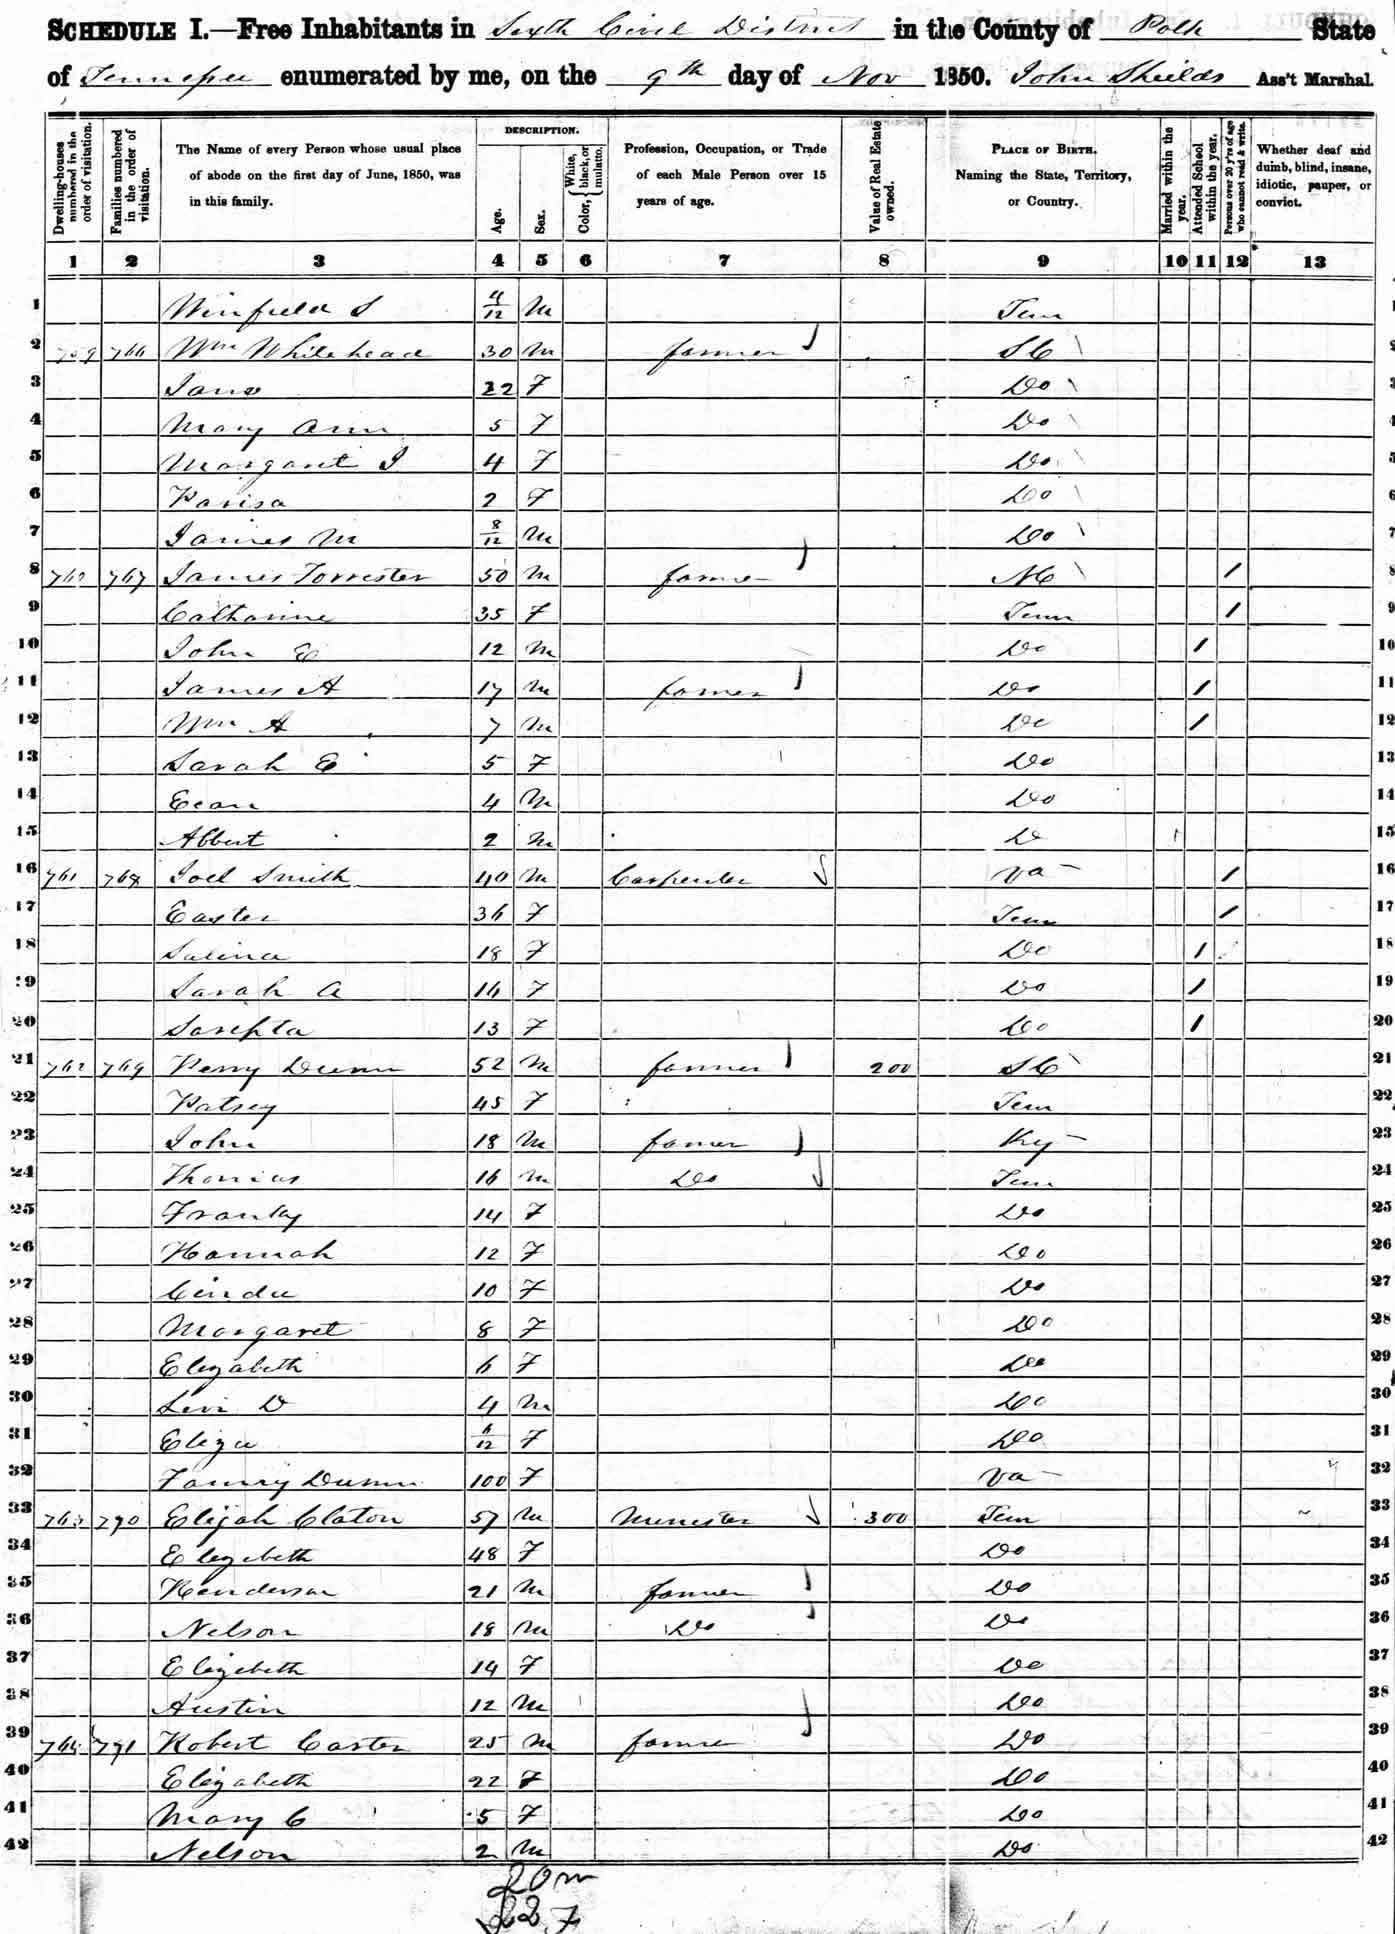 SCHEDULE I.—Free Inhabitants in Sixth Civil District in the County of Polk State
of Tennessee enumerated by me, on the 9th day of Nov 1850. John Shields Ass't Marshal.
Dwelling-houses numbered in the order of visitation.
Families numbered in the order of visitation.
The Name of every Person whose usual place of abode on the first day of June, 1850, was in this family.
DESCRIPTION.
Age.
Sex.
Color, { White, black, or mulatto.
Profession, Occupation, or Trade of each Male Person over 15 years of age.
Value of Real Estate owned.
PLACE OF BIRTH. Naming the State, Territory, or Country.
Married within the year.
Attended School within the year.
Persons over 20 y'rs of age who cannot read & write.
Whether deaf and dumb, blind, insane, idiotic, pauper, or convict.
1 2 3 4 5 6 7 8 9 10 11 12 13
1 Winfield S 4/12 M Tenn 1
2 759 766 Wm Whitehead 30 M farmer SC 2
3 Jane 22 F Do 3
4 Mary Ann 5 F Do 4
5 Margaret J 4 F Do 5
6 2 F Do 6
7 James M 8/12 M Do 7
8 760 767 James Forrester 50 M farmer NC / 8
9 Catharine 35 F Tenn / 9
10 John E 12 M Do / 10
11 James A 17 M farmer Do / 11
12 Wm A 7 M Do / 12
13 Sarah E 5 F Do 13
14 4 M Do 14
15 Albert 2 M D 15
16 761 768 Joel Smith 40 M Carpenter Va / 16
17 Easter 36 F Tenn / 17
18 Salina 18 F Do / 18
19 Sarah A 16 F Do / 19
20 Sarepta 13 F Do / 20
21 762 769 Perry Dunn 52 M farmer 200 SC 21
22 Patsey 45 F Tenn 22
23 John 18 M farmer Ky 23
24 Thomas 16 M Do Tenn 24
25 Franky 14 F Do 25
26 Hannah 12 F Do 26
27 10 F Do 27
28 Margaret 8 F Do 28
29 Elizabeth 6 F Do 29
30 Levi D 4 M Do 30
31 Eliza 6/12 F Do 31
32 Fanny Dunn 100 F Va 32
33 763 790 Elijah Claton 57 M Minester 300 Tenn 33
34 Elizebeth 48 F Do 34
35 Henderson 21 M farmer Do 35
36 Nelson 18 M Do Do 36
37 Elizebeth 14 F Do 37
38 Austin 12 M Do 38
39 764 791 Robert Carter 25 M farmer Do 39
40 Elizabeth 22 F Do 40
41 Mary C 5 F Do 41
42 Nelson 2 M Do 42
20 m
22 F